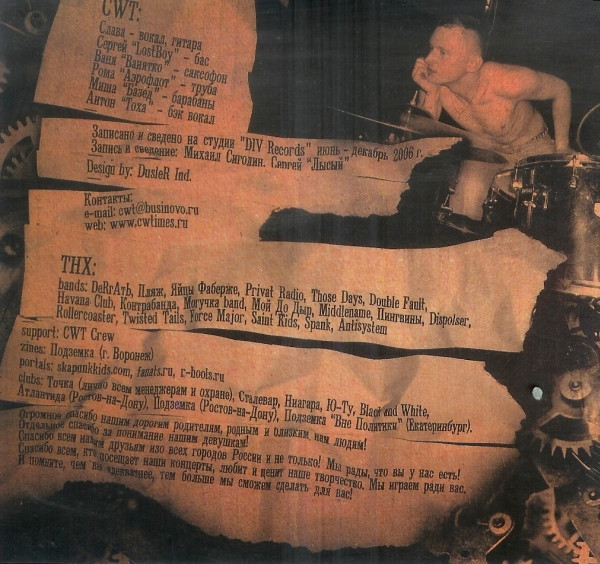 CWT:
Слава - вокал, гитара
Сергей "LostBoy" - бас
Ваня "Ванятко" - саксофон
Рома "Аэрофлот" - труба
Миша "Базед" - барабаны
Антон "Тоха" - бэк вокал
Записано и сведено на студии "DIV Records" июнь - декабрь 2006 г.
Запись и сведение: Михаил Снгодин. Сергей "Лысый"
Design by: DusleR Ind.
Контакты:
e-mail: cwt@businovo.ru
web: www.cwtimes.ru
THX:
bands: DeRrATЬ, Пляж, Яйцы Фаберже, Privat Radio, Those Days, Double Fault,
Havana Club, Контрабанда, Могучка band, Мой До Дыр, Middlename, Пингвины, Dispolser,
Rollercoaster, Twisted Tails, Force Major, Saint Kids, Spank, Antisystem
support: CWT Crew
zines: Подземка (г. Воронеж)
portals: skapunkkids.com, fanats.ru, r-hools.ru
clubs: Точка (лично всем менеджерам и охране), Сталевар, Ниагара, Ю-Ту, Black and White,
Атлантида (Ростов-на-Дону), Подземка (Ростов-на-Дону), Подземка "Вне Политики" (Екатеринбург).
Огромное спасибо нашим дорогим родителям, родным и близким, нам людям!
Отдельное спасибо за понимание нашим девушкам!
Спасибо всем нашим друзьям изо всех городов России и не только! Мы рады, что вы у нас есть!
Спасибо всем, кто посещает наши концерты, любит и ценит наше творчество. Мы играем ради вас.
И помните, чем вы адекватнее, тем больше мы сможем сделать для вас!